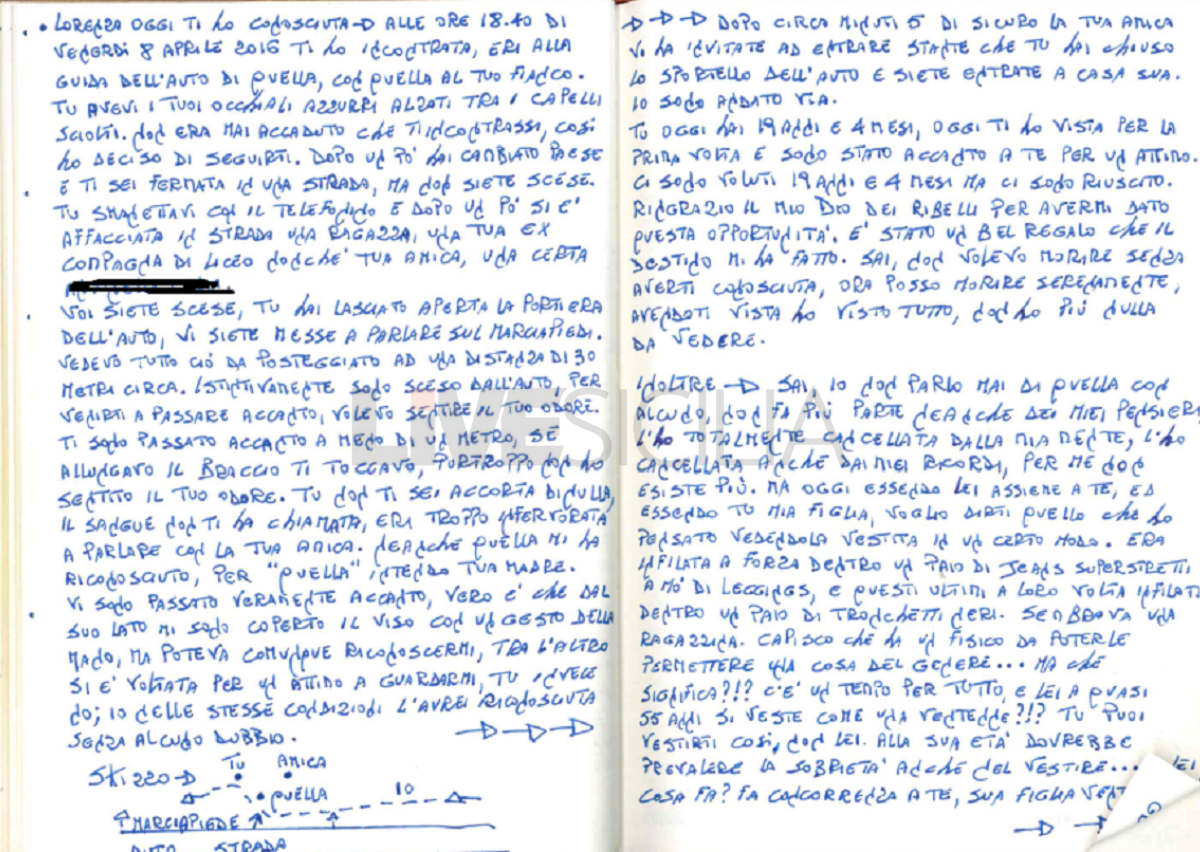 • LORENZA OGGI TI HO CONOSCIUTA → ALLE ORE 18.40 DI
VENERDÌ 8 APRILE 2016 TI HO INCONTRATA, ERI ALLA
GUIDA DELL'AUTO DI QUELLA, CON QUELLA AL TUO FIANCO.
TU AVEVI I TUOI OCCHIALI AZZURRI ALZATI TRA I CAPELLI
SCIOLTI. NON ERA MAI ACCADUTO CHE TI INCONTRASSI, COSÌ
HO DECISO DI SEGUIRTI. DOPO UN PÒ HAI CAMBIATO PAESE
E TI SEI FERMATA IN UNA STRADA, MA NON SIETE SCESE.
TU SMANETTAVI CON IL TELEFONINO E DOPO UN PÒ SI E'
AFFACCIATA IN STRADA UNA RAGAZZA, UNA TUA EX
COMPAGNA DI LICEO NONCHÈ TUA AMICA, UNA CERTA
VOI SIETE SCESE, TU HAI LASCIATO APERTA LA PORTIERA
DELL'AUTO, VI SIETE MESSE A PARLARE SUL MARCIAPIEDI.
VEDEVO TUTTO CIÓ DA POSTEGGIATO AD UNA DISTANZA DI 30
METRI CIRCA. ISTINTIVAMENTE SONO SCESO DALL'AUTO, PER
VENIRTI A PASSARE ACCANTO, VOLEVO SENTIRE IL TUO ODORE.
TI SONO PASSATO ACCANTO A MENO DI UN METRO, SE
ALLUNGAVO IL BRACCIO TI TOCCAVO, PURTROPPO NON HO
SENTITO IL TUO ODORE. TU NON TI SEI ACCORTA DI NULLA,
IL SANGUE NON TI HA CHIAMATA, ERI TROPPO INFERVORATA
A PARLARE CON LA TUA AMICA. NEANCHE QUELLA MI HA
RICONOSCIUTO, PER "QUELLA" INTENDO TUA MADRE.
VI SONO PASSATO VERAMENTE ACCANTO, VERO E' CHE DAL
SUO LATO MI SONO COPERTO IL VISO CON UN GESTO DELLA
MANO, MA POTEVA COMUNQUE RICONOSCERMI, TRA L'ALTRO
SI E' VOLTATA PER UN ATTIMO A GUARDARMI, TU INVECE
NO; IO NELLE STESSE CONDIZIONI L'AVREI RICONOSCIUTA
SENZA ALCUNO DUBBIO. →→→
SKIZZO → TU AMICA
QUELLA IO
MARCIAPIEDE
AUTO STRADA
→→→ DOPO CIRCA MINUTI 5 DI SICURO LA TUA AMICA
VI HA INVITATE AD ENTRARE STANTE CHE TU HAI CHIUSO
LO SPORTELLO DELL'AUTO E SIETE ENTRATE A CASA SUA.
IO SONO ANDATO VIA.
TU OGGI HAI 19 ANNI E 4 MESI, OGGI TI HO VISTA PER LA
PRIMA VOLTA E SONO STATO ACCANTO A TE PER UN ATTIMO.
CI SONO VOLUTI 19 ANNI E 4 MESI MA CI SONO RIUSCITO.
RINGRAZIO IL MIO DIO DEI RIBELLI PER AVERMI DATO
QUESTA OPPORTUNITA'. E' STATO UN BEL REGALO CHE IL
DESTINO MI HA FATTO. SAI, NON VOLEVO MORIRE SENZA
AVERTI CONOSCIUTA, ORA POSSO MORIRE SERENAMENTE,
AVENDOTI VISTA HO VISTO TUTTO, NON HO PIÙ NULLA
DA VEDERE.
INOLTRE → SAI, IO NON PARLO MAI DI QUELLA CON
ALCUNO, NON FA PIÙ PARTE NEANCHE DEI MIEI PENSIERI,
L'HO TOTALMENTE CANCELLATA DALLA MIA MENTE, L'HO
CANCELLATA ANCHE DAI MIEI RICORDI, PER ME NON
ESISTE PIÙ. MA OGGI ESSENDO LEI ASSIEME A TE, ED
ESSENDO TU MIA FIGLIA, VOGLIO DIRTI QUELLO CHE HO
PENSATO VEDENDOLA VESTITA IN UN CERTO MODO. ERA
INFILATA A FORZA DENTRO UN PAIO DI JEANS SUPERSTRETTI
A MÓ DI LEGGINGS, E QUESTI ULTIMI A LORO VOLTA INFILATI
DENTRO UN PAIO DI TRONCHETTI NERI. SEMBRAVA UNA
RAGAZZINA. CAPISCO CHE HA UN FISICO DA POTERLE
PERMETTERE UNA COSA DEL GENERE... MA CHÈ
SIGNIFICA?!? C'E' UN TEMPO PER TUTTO, E LEI A QUASI
55 ANNI SI VESTE COME UNA VENTENNE?!? TU PUOI
VESTIRTI COSÌ, NON LEI. ALLA SUA ETÀ DOVREBBE
PREVALERE LA SOBRIETA' ANCHE NEL VESTIRE... LEI
COSA FA? FA CONCORRENZA A TE, SUA FIGLIA
→ →
LIVESICILIA